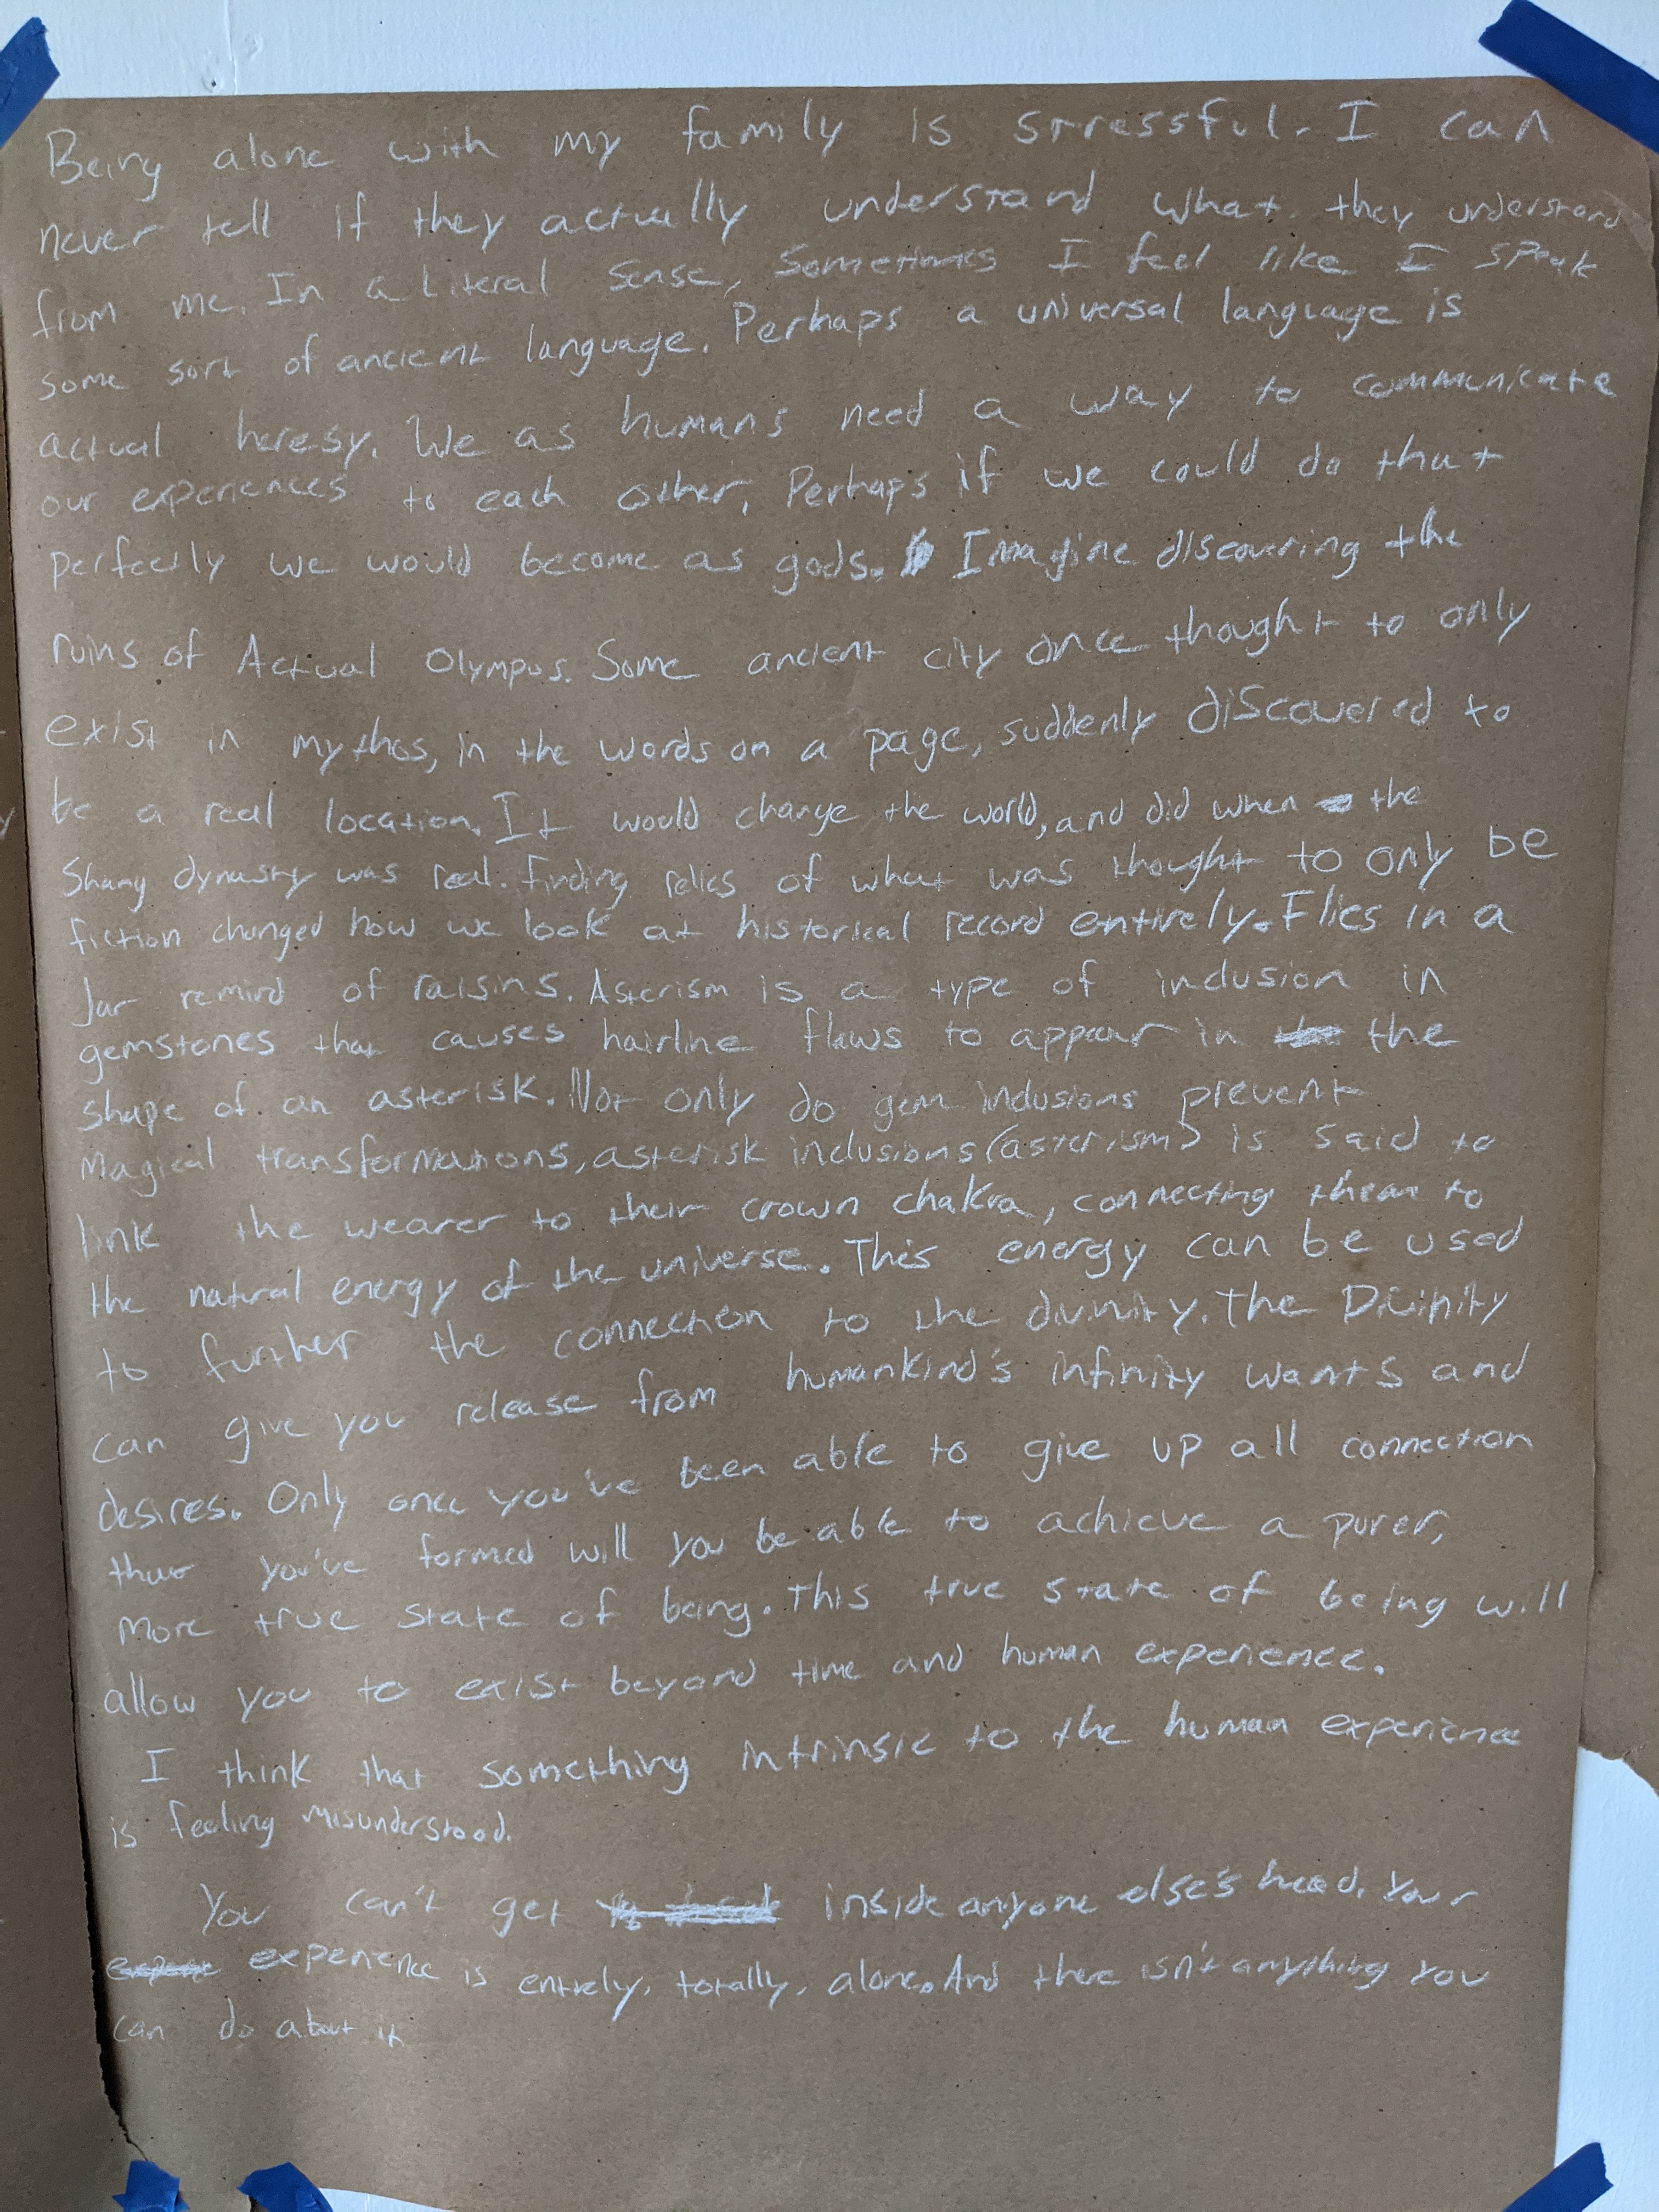 Being alone with my family is stressful. I can
never tell if they actually understand what they understand
from me. In a Literal sense, sometimes I feel like I speak
some sort of ancient language. Perhaps a universal language is
actual heresy. We as humans need a way to communicate
our experiences to each other, Perhaps if we could do that
perfectly we would become as gods. Imagine discovering the
ruins of Actual Olympus. Some ancient city once thought to only
exist in mythos, in the words on a page, suddenly discovered to
be a real location. It would change the world, and did when the
Shang dynasty was real. finding relics of what was thought to only be
fiction changed how we look at historical record entirely. Flies in a
Jar remind of raisins. Asterism is a type of inclusion in
gemstones that causes hairline flaws to appear in the
shape of an asterisk. Not only do gem inclusions prevent
Magical transformations, asterisk inclusions (asterism) is said to
link the wearer to their crown chakra, connecting them to
the natural energy of the universe. This energy can be used
to further the connection to the divinity. The Divinity
can give you release from humankind's infinity wants and
desires. Only once you've been able to give up all connection
you've formed will you be able to achieve a purer,
More true state of being. This true state of being will
allow you to exist beyond time and human experience.
I think that something intrinsic to the human experience
is feeling misunderstood.
You can't get inside anyone else's head. Your
experience is entirely, totally, alone. And there isn't anything you
can do about it